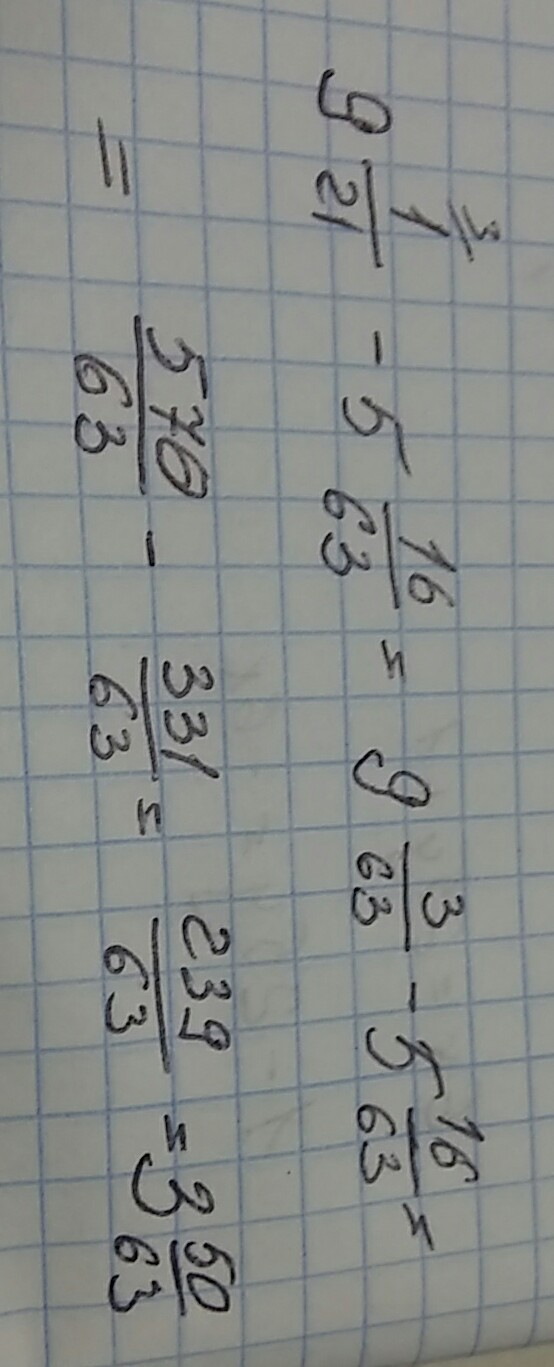 9 1/21 ³⁄ - 5 16/63 = 9 3/63 - 5 16/63 =
= 570/63 - 331/63 = 239/63 = 3 50/63